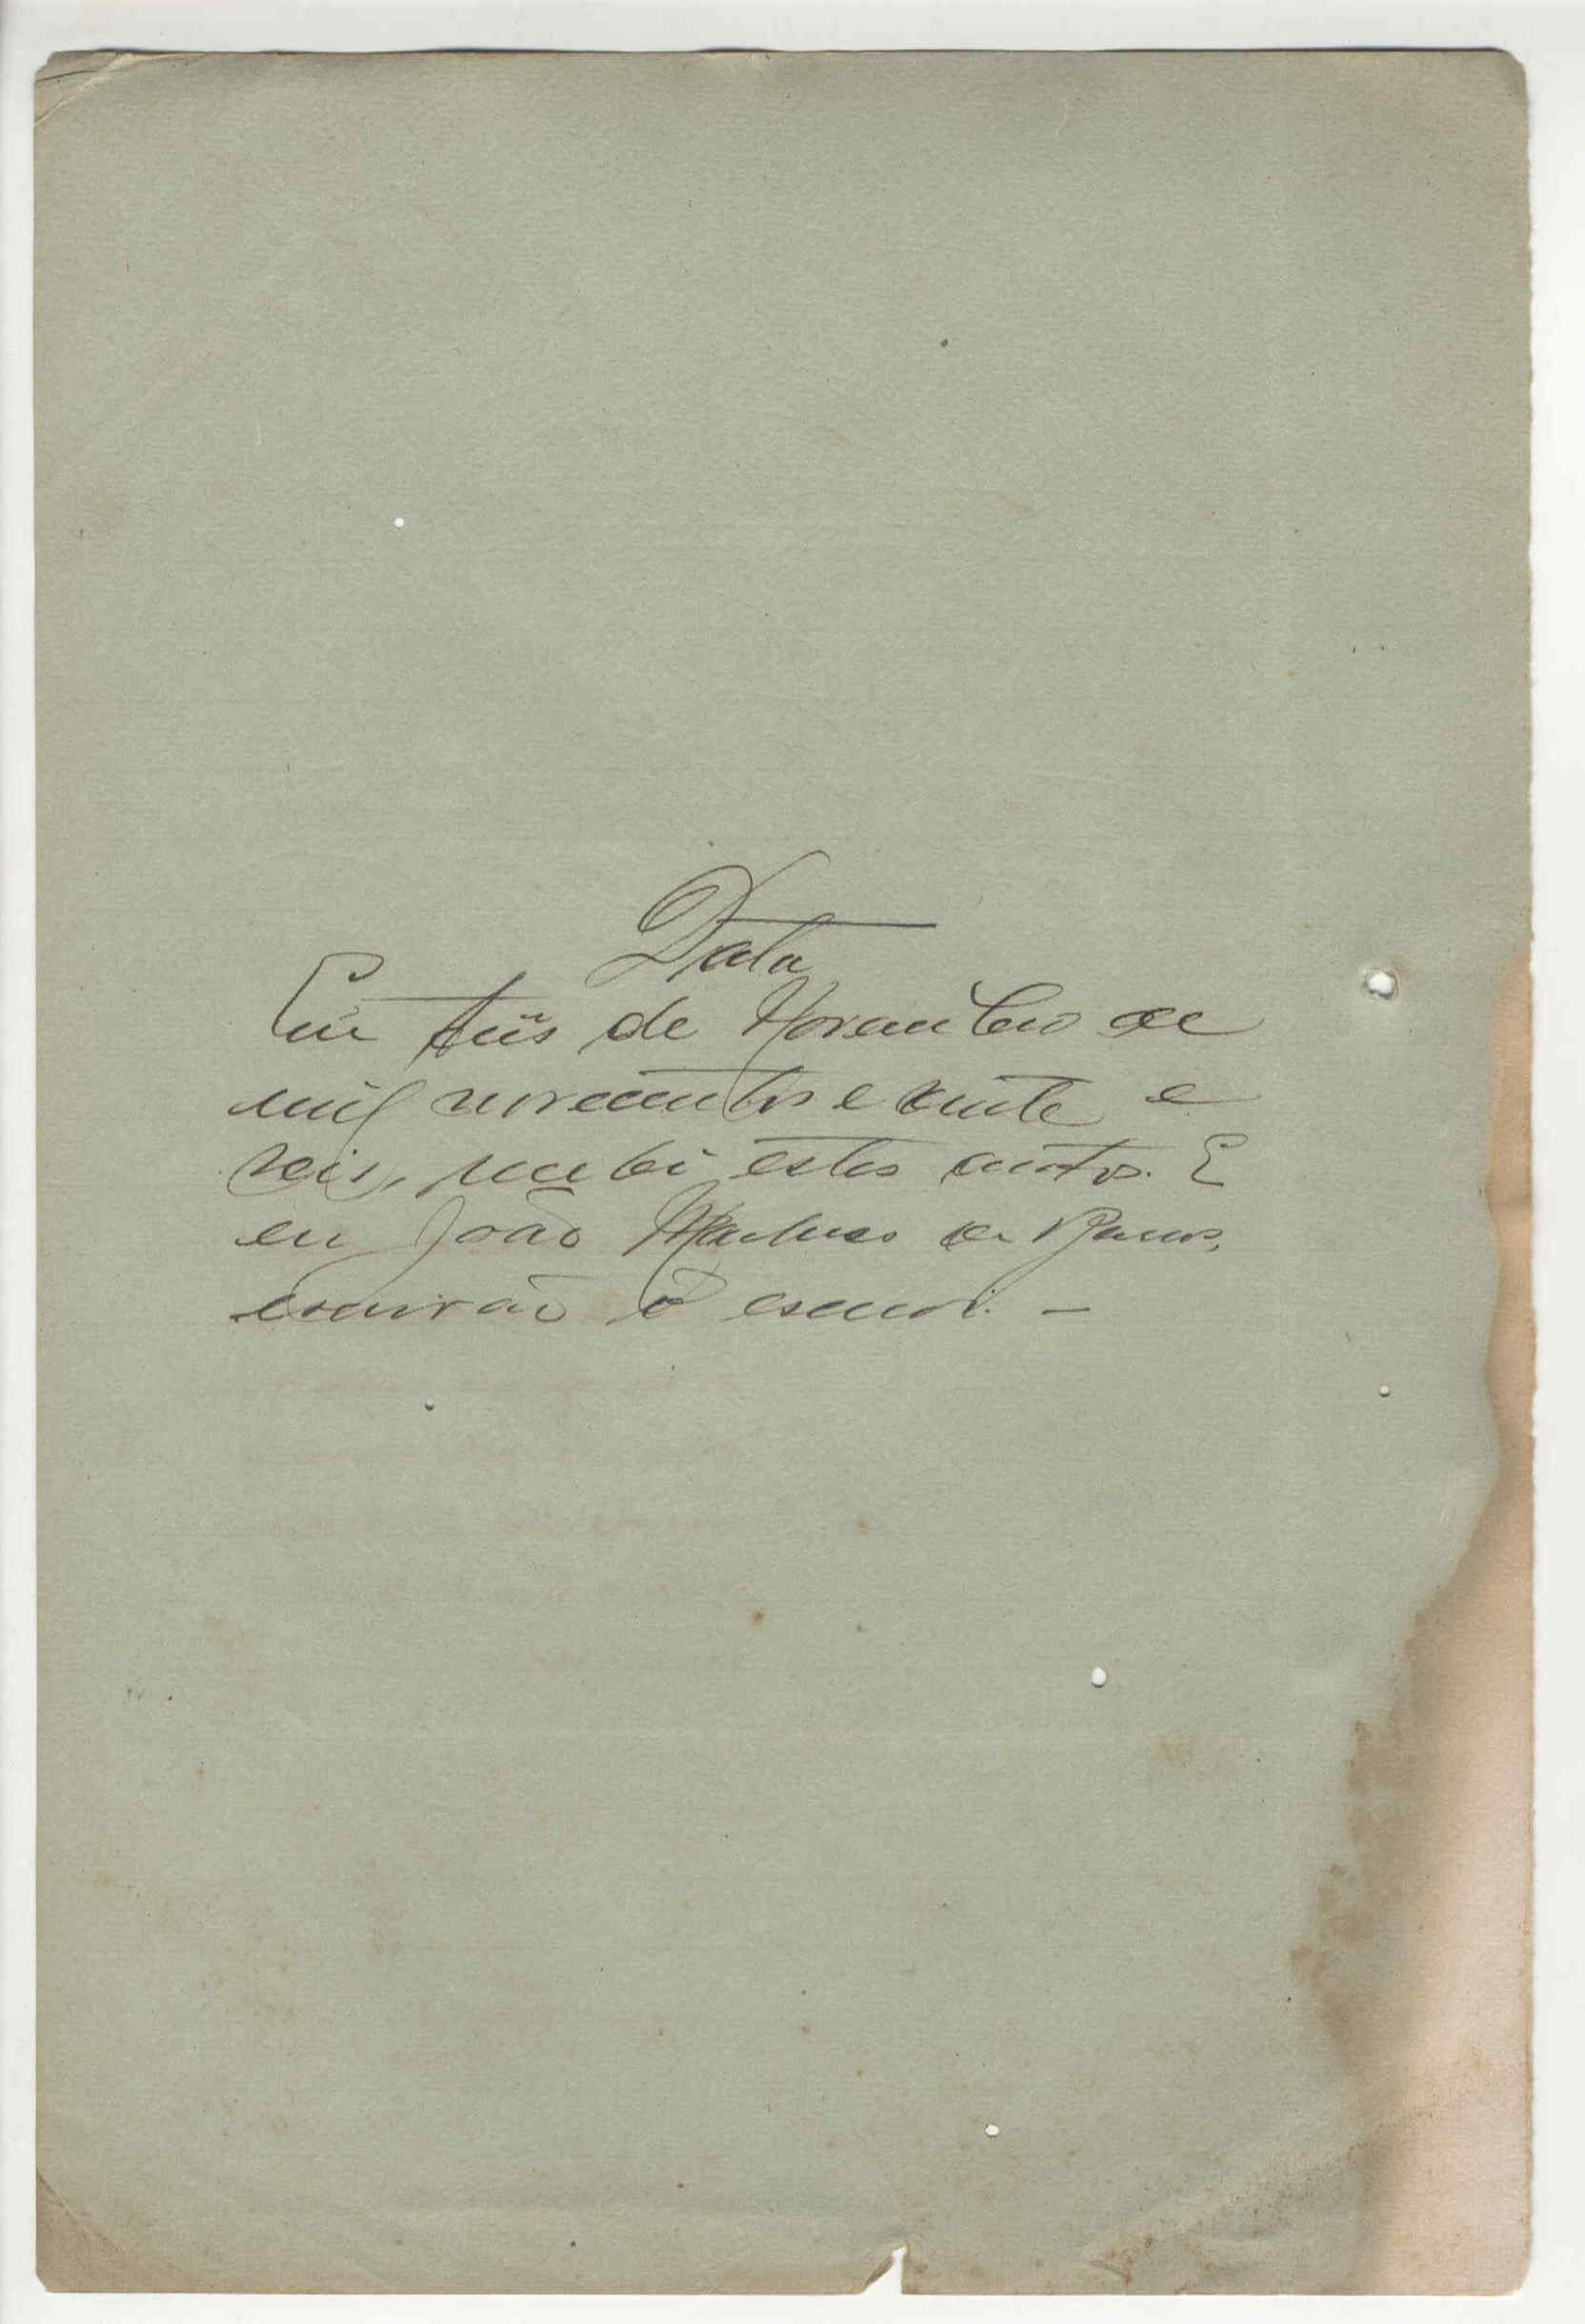 Data
Em tres de Novembro de
mil novecentos e vinte e
seis, recebi estes autos. E
eu João de Barros,
escrivão o escrevi. —